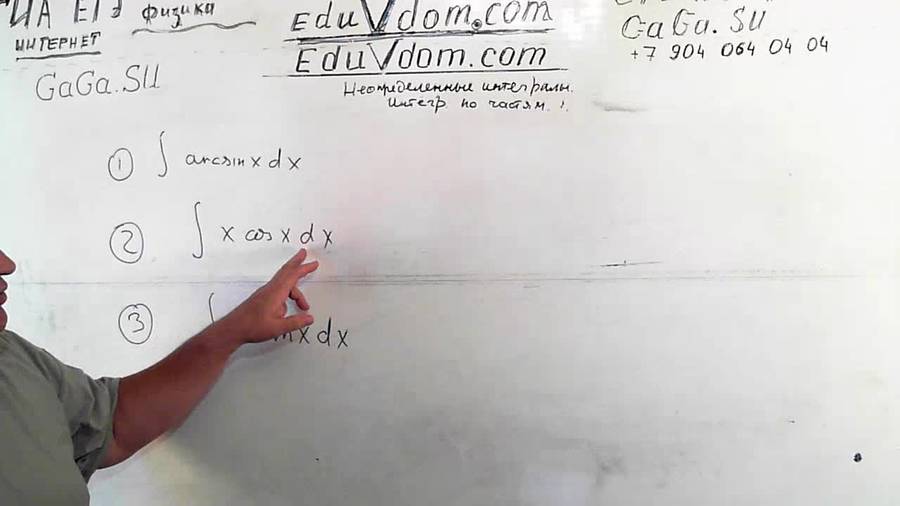 ЕГЭ физика
ИНТЕРНЕТ
GaGa.SU
EduVdom.com
EduVdom.com
Неопределенные интегралы.
Интегр. по частям.
GaGa.SU
+7 904 064 04 04
① ∫ arcsin x dx
② ∫ x cos x dx
③ ∫ x dx